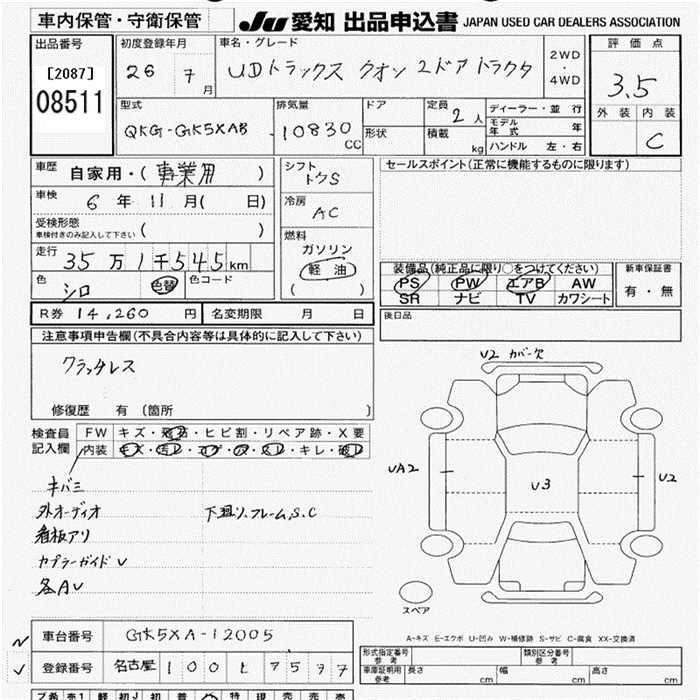 車内保管・守衛保管
JU 愛知 出品申込書 JAPAN USED CAR DEALERS ASSOCIATION
出品番号
[2087]
08511
初度登録年月
26 7月
車名・グレード
UDトラックス クオン 2ドアトラクタ
2WD
・
4WD
評価点
3.5
外装 内装
C
型式
QKG-GK5XAB
排気量
10830 CC
ドア
形状
定員 2人
積載 kg
ディーラー・並行
モデル年式 年
ハンドル 左・右
車歴 自家用・(事業用)
車検 6年11月( 日)
受検形態
車検付きのみ記入して下さい ( )
走行 35万1千545km
色 シロ 色替 色コード
シフト
冷房
AC
燃料
ガソリン
軽油
( )
セールスポイント(正常に機能するものに限ります)
装備品(純正品に限り○をつけてください)
PS PW エアB AW
SR ナビ TV カワシート
新車保証書
有・無
R券 14,260円 名変期限 月 日
後日品
注意事項申告欄(不具合内容等は具体的に記入して下さい)
クラッチレス
修復歴 有 [箇所 ]
検査員記入欄
FW キズ・飛石・ヒビ割・リペア跡・X要
内装 キズ・汚レ・コゲ・穴・スレ・キレ・破レ
キバミ
外オーディオ
下廻リ、フレームS.C
看板アリ
カプラーガイドV
各AV
V2 カバー欠
UA2
U3
U2
スペア
A-キズ E-エクボ U-凹み W-補修跡 S-サビ C-腐食 XX-交換済
車台番号 GK5XA-12005
登録番号 名古屋 100
型式指定番号
参考
類別区分番号
参考
車庫証明用
参考
長さ cm 幅 cm 高さ cm